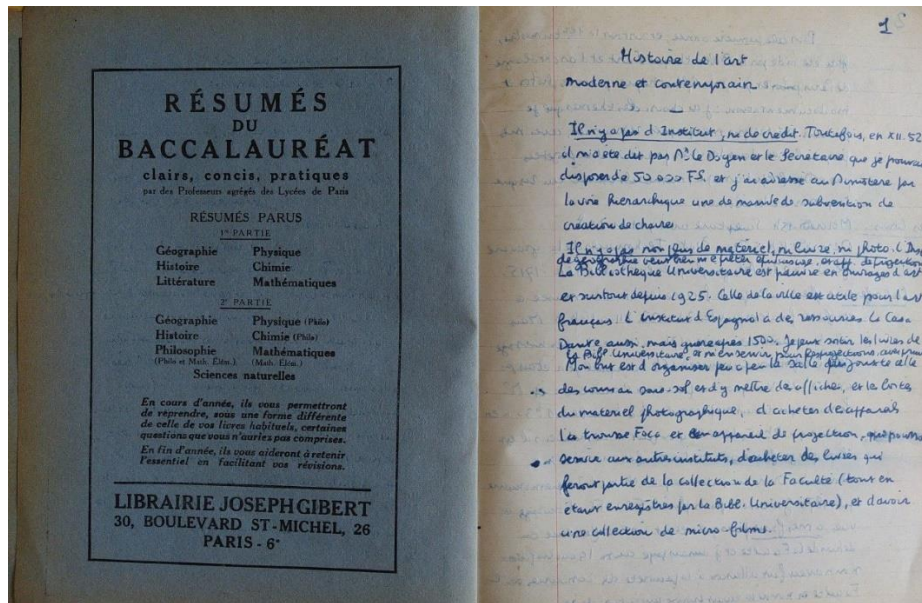 RÉSUMÉS
DU
BACCALAURÉAT
clairs, concis, pratiques
par des Professeurs agrégés des Lycées de Paris
RÉSUMÉS PARUS
1e PARTIE
Géographie Physique
Histoire Chimie
Littérature Mathématiques
2e PARTIE
Géographie Physique (Philo)
Histoire Chimie (Philo)
Philosophie Mathématiques
(Philo et Math. Élém.) (Math. Élém.)
Sciences naturelles
En cours d'année, ils vous permettront
de reprendre, sous une forme différente
de celle de vos livres habituels, certaines
questions que vous n'auriez pas comprises.
En fin d'année, ils vous aideront à retenir
l'essentiel en facilitant vos révisions.
LIBRAIRIE JOSEPH GIBERT
30, BOULEVARD ST-MICHEL, 26
PARIS - 6e
1
Histoire de l'art
moderne et contemporain
Il n'y a pas d'Institut, ni de crédit. Toutefois, en XII. 52
il m'a été dit par Mr le Doyen et le Secrétaire que je pouvais
disposer de 50 000 FS. et j'ai adressé au Ministère par
la voie hiérarchique une demande de subvention de
création de chaire.
Il n'y a pas non plus de matériel, ni livre, ni photo. L'
de géographie veut bien me prêter et app. de projection
La Bibliothèque Universitaire est pauvre en ouvrages d'art
et surtout depuis 1925. Celle de la ville est utile pour l'art
français. L'Institut d'Espagnol a des ressources. La Casa
Dante aussi, mais guère après 1500. Je peux sortir les livres de
la Bibl. Universitaire, et m'en servir pour les projections
Mon but est d'organiser peu à peu la salle qui jouxte celle
des cours au sous-sol et d'y mettre des affiches, et les boites
du matériel photographique, d'acheter des appareils
la trousse Foca et un appareil de projection, qui pourra
service aux autres instituts, d'acheter des livres qui
feront partie de la collection de la Faculté (tout en
étant enregistrés par la Bibl. Universitaire), et d'avoir
une collection de micro-films.